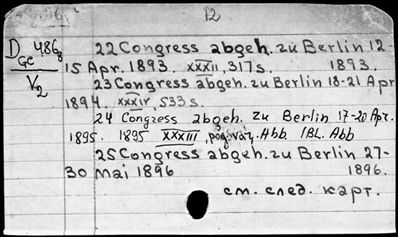 12
D 486
GC
V2
22 Congress abgeh. zu Berlin 12-
15 Apr. 1893. XXXII, 317s. 1893.
23 Congress abgeh. zu Berlin 18-21 Apr
1894. XXXIV, 533s.
24 Congress abgeh. zu Berlin 17-20 Apr.
1895. 1895 XXXIII, Abb. 1BL. Abb
25 Congress abgeh. zu Berlin 27-
30 Mai 1896 1896.
см. след. карт.